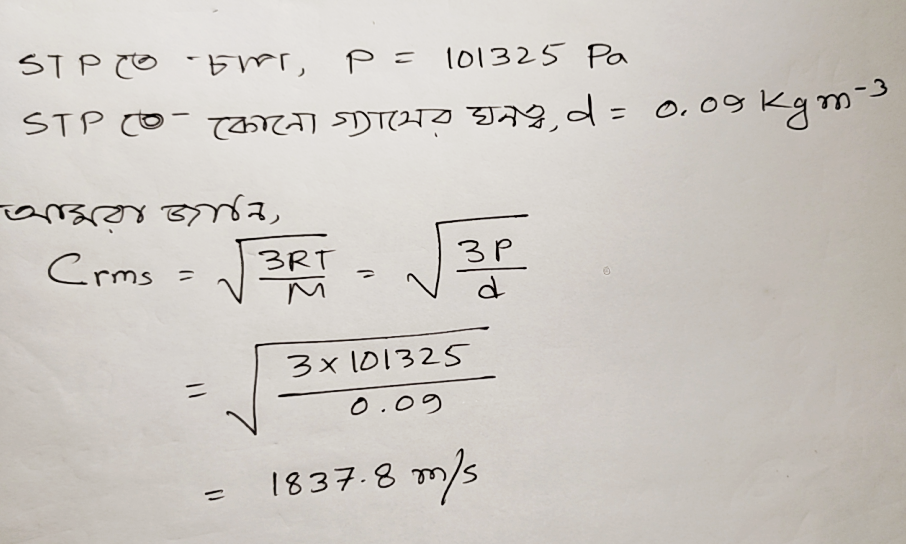 STP তে চাপ, P = 101325 Pa
STP তে- কোনো গ্যাসের ঘনত্ব, d = 0.09 Kgm-3
আমরা জানি,
Crms = √3RT/M = √3P/d
= √3×101325/0.09
= 1837.8 m/s